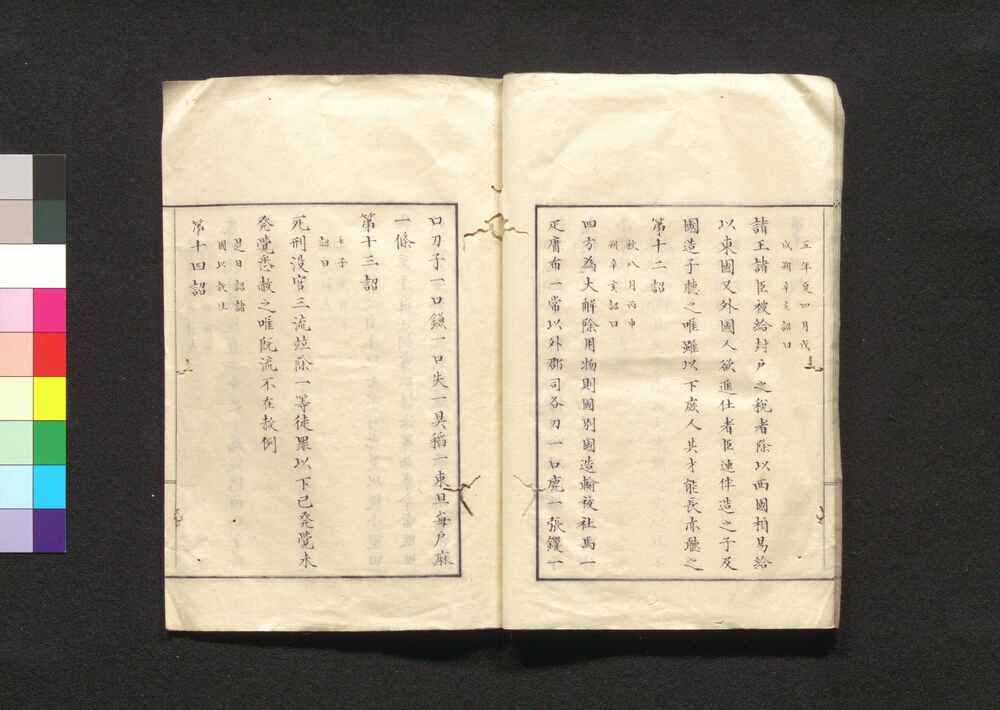 五年夏四月戊
戌朔辛亥詔曰
諸王諸臣被給封戸之税者除以西國相易給
以東國又外國人欲進仕者臣連伴造之子及
國造子聴之唯雖以下庶人其才能長亦聴之
第十二詔
秋八月丙申
朔辛亥詔曰
四方為大解除用物則國別國造輸祓柱馬一
疋膚布一常以外郡司各刀一口鹿一張钁一
口刀子一口鎌一口矢一具稲一束且毎戸麻
一條
第十三詔
壬子
詔曰
死刑没官三流並除一等徒罪以下已発覺未
発覺悉赦之唯既流不在赦例
第十四詔
是日詔諸
國以放生